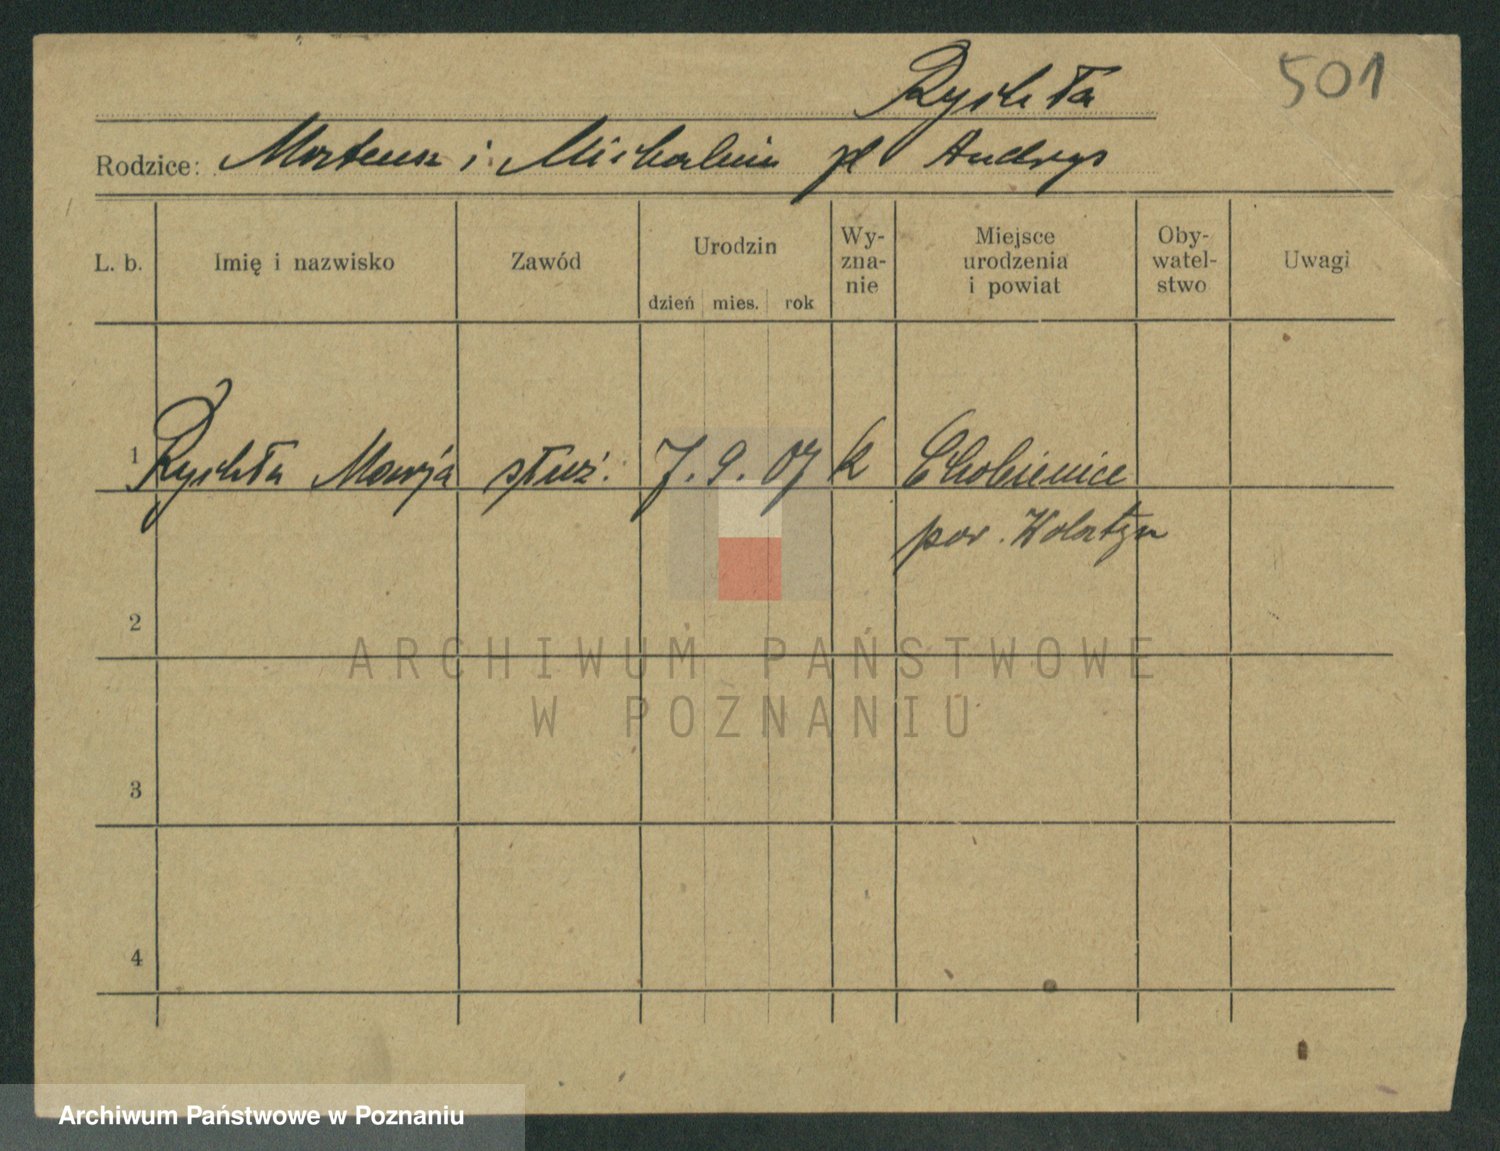 Rychła
501
Rodzice: Mateusz i Michalina pł Andrys
L. b.
Imię i nazwisko
Zawód
Urodzin
dzień mies. rok
Wy-
zna-
nie
Miejsce
urodzenia
i powiat
Oby-
watel-
stwo
Uwagi
1 Rychła Marja służ. 7. 9. 07 k Chobienice
pow. Wolsztyn
2
3
4
ARCHIWUM PAŃSTWOWE
W POZNANIU
Archiwum Państwowe w Poznaniu